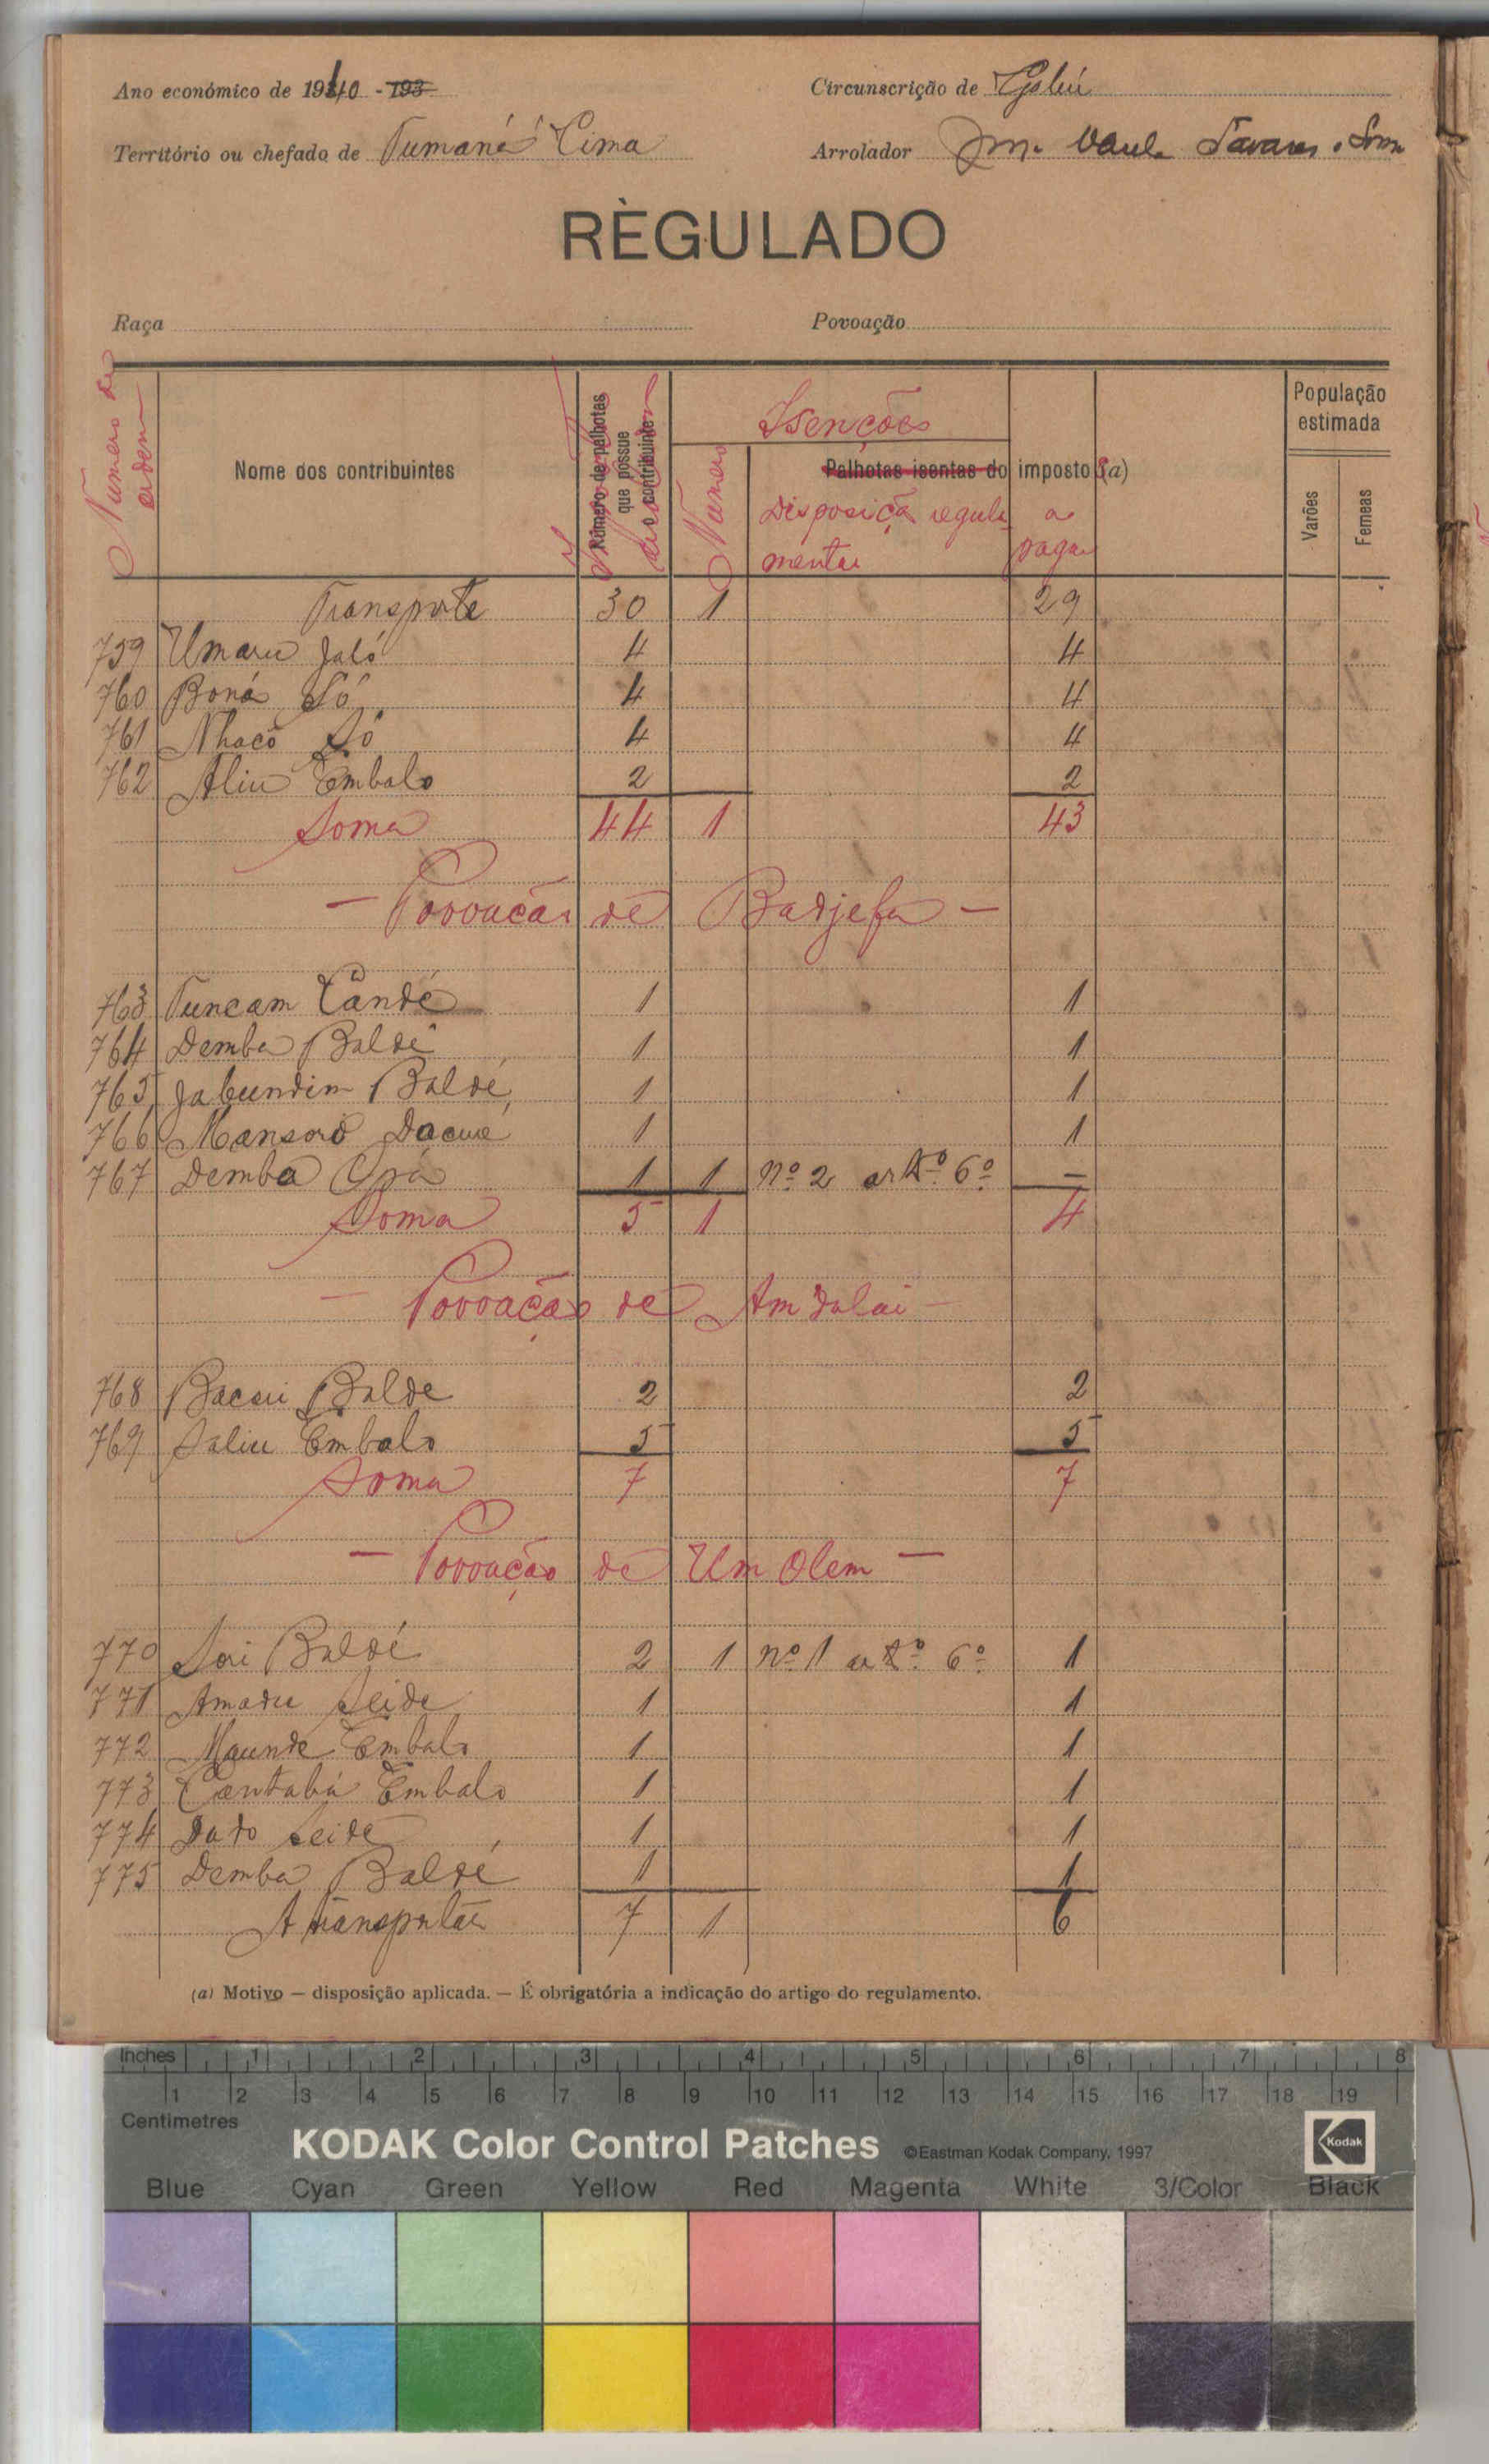 Ano económico de 1940 - 193
Circunscrição de Gabú
Território ou chefado de Tumaná Cima
Arrolador Tavares
RÈGULADO
Raça
Povoação
Numero de ordem
Nome dos contribuintes
Número de palhotas que possue o contribuinte
Isenções
Numero
Palhotas isentas do imposto (a)
Disposiçã regula
mentar
a
pagar
População estimada
Varões
Femeas
Transporte 30 1 29
759 Umaru Jaló 4 4
760 Boná Só 4 4
761 Nhacó Só 4 4
762 Aliu Embalo 2 2
Soma 44 1 43
— Povoação de Badjefa —
763 Tuncam Candé 1 1
764 Demba Baldé 1 1
765 Jabundim Baldé 1 1
766 Mansoró Dacué 1 1
767 Demba 1 1 nº 2 artº 6º —
Soma 5 1 4
— Povoação de Amdalai —
768 Bacari Balde 2 2
769 Saliu Embalo 5 5
Soma 7 7
— Povoação de Um Olem —
770 Sori Baldé 2 1 nº 1 artº 6º 1
771 Amadu Seide 1 1
772 Maunde Embalo 1 1
773 Cantabá Embalo 1 1
774 Dado Seide 1 1
775 Demba Baldé 1 1
A transportar 7 1 6
(a) Motivo — disposição aplicada. — É obrigatória a indicação do artigo do regulamento.
Inches 1 2 3 4 5 6 7 8
1 2 3 4 5 6 7 8 9 10 11 12 13 14 15 16 17 18 19
Centimetres
KODAK Color Control Patches ©Eastman Kodak Company, 1997 Kodak
Blue Cyan Green Yellow Red Magenta White 3/Color Black